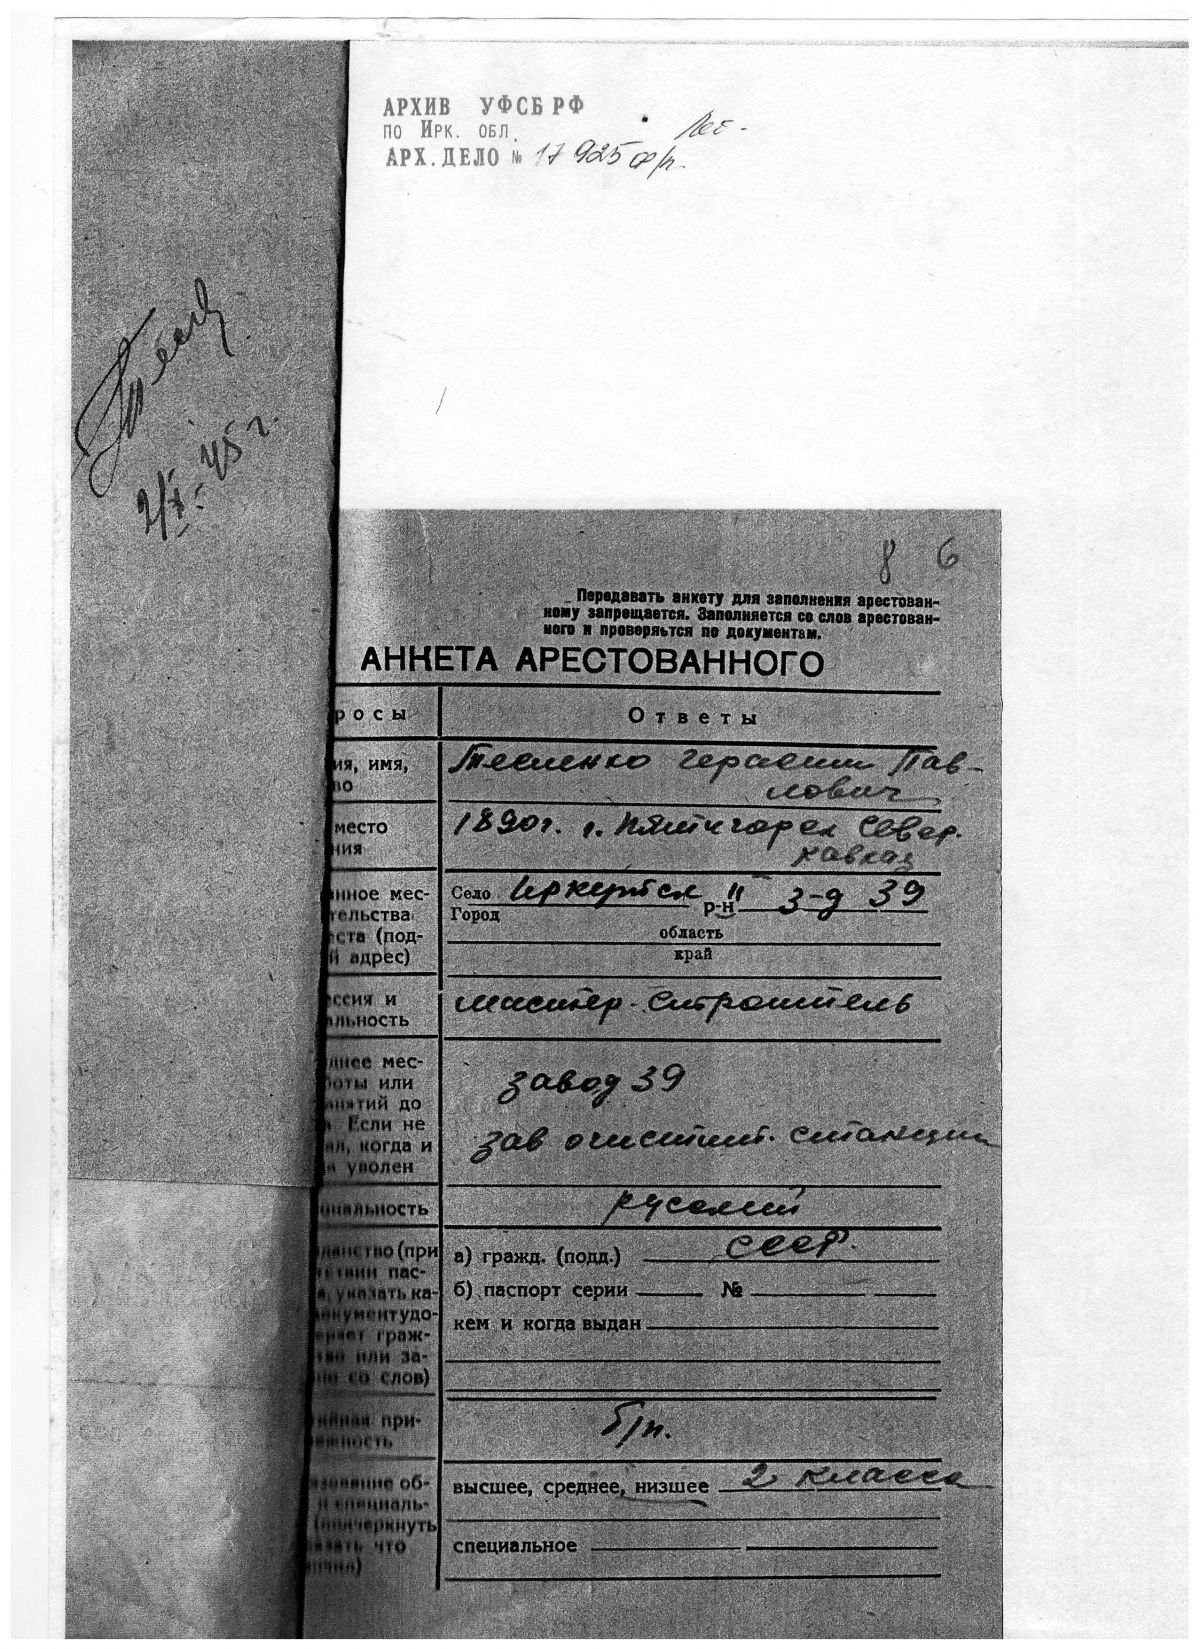 АРХИВ УФСБ РФ
ПО ИРК. ОБЛ.
АРХ. ДЕЛО № 17925 ф/п.
2/X-45 г.
8 6
Передавать анкету для заполнения арестован-
ному запрещается. Заполняется со слов арестован-
ного и проверяьтся по документам.
АНКЕТА АРЕСТОВАННОГО
росы
Ответы
ия, имя,
во
Тесленко Герасим Пав-
лович
место
ния
1890 г. г. Пятигорск Север.
Кавказ
нное мес-
тельства
еста (под-
й адрес)
Село Иркутск II р-н з-д 39
Город
область
край
ссия и
альность
мастер-строитель
днее мес-
боты или
анятий до
Если не
ал, когда и
а уволен
завод 39
зав очистит. станции
циональность
русский
данство (при
тствии пас-
а, указать ка-
документ удо-
еряет граж-
тво или за-
но со слов)
а) гражд. (подд.) СССР.
б) паспорт серии №
кем и когда выдан
тийная при-
лежность
б/п.
азование об-
и специаль-
(подчеркнуть
азать что
ончил)
высшее, среднее, низшее 2 класса
специальное